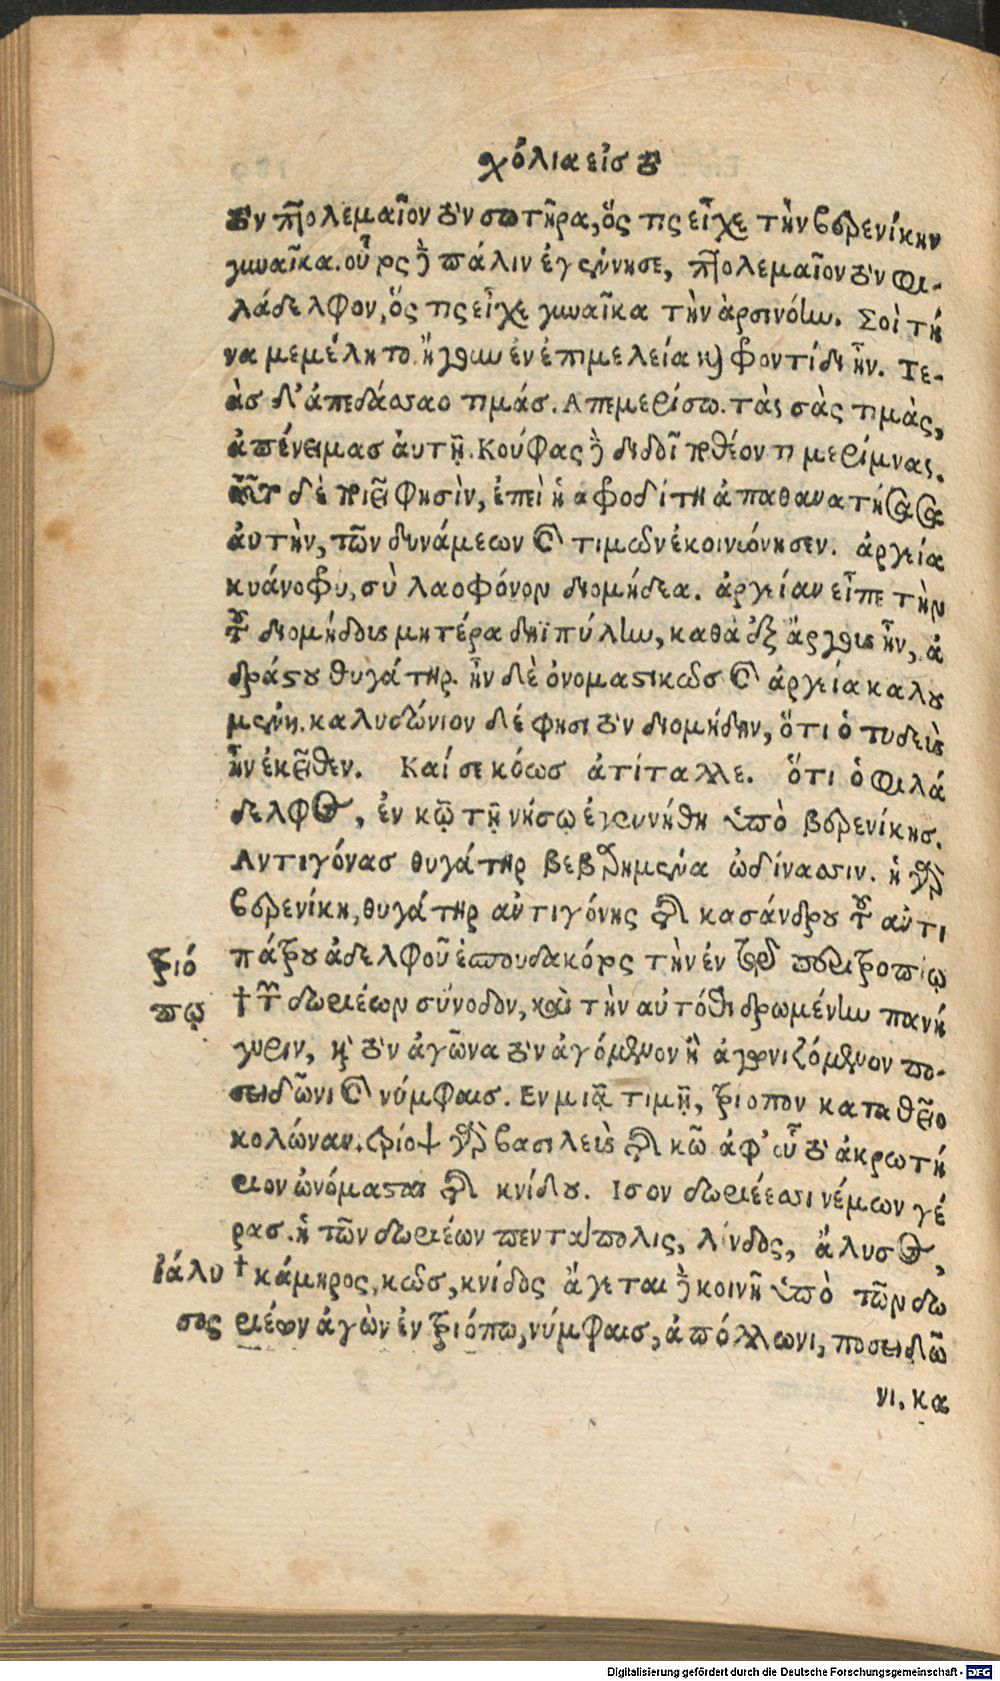 χόλια εἰς τὸ
τὸν πτολεμαῖον τὸν σωτῆρα, ὅς τις εἶχε τὴν βερενίκην
γυναῖκα. οὗτος δὲ πάλιν ἐγέννησε, πτολεμαῖον τὸν φι-
λάδελφον, ὅς τις εἶχε γυναῖκα τὴν ἀρσινόην. Σοὶ τή
να μεμέλητο. ἤγουν ἐν ἐπιμελείᾳ καὶ φροντίδι ἦν. Τε-
ὰς δ' ἀπεδάσσαο τιμάς. Απεμερίσω. τὰς σὰς τιμὰς,
ἀπένειμας ἀυτῇ. Κούφας δὲ διδοῖ ποθέοντι μερίμνας.
δὲ φησὶν, ἐπεὶ ἡ αφροδίτη ἀπαθανατήσασα
ἀυτὴν, τῶν δυνάμεων καὶ τιμῶν ἐκοινώνησεν. ἀργεία
κυάνοφρυ, σὺ λαοφόνον διομήδεα. ἀργείαν εἶπε τὴν
τοῦ διομήδους μητέρα δηϊπύλην, καθὰ ἐξ ἄργους ἦν, ἀ
δράστου θυγάτηρ. ἦν δὲ ὀνομαστικῶς καὶ ἀργεία καλου
μένη. καλυδώνιον δέ φησι τὸν διομήδην, ὅτι ὁ τυδεὺς
ἦν ἐκεῖθεν. Καί σε κόως ἀτίταλλε. ὅτι ὁ φιλά
δελφος, ἐν κῷ τῇ νήσῳ ἐγεννήθη ὑπὸ βερενίκης.
Αντιγόνας θυγάτηρ βεβαρημένα ὠδίνασσιν. ἡ γὰρ
βερενίκη, θυγάτηρ αὐντιγόνης τῆς κασάνδρου τοῦ αὐντι
πάτρου ἀδελφοῦ ἐσπουδακότος τὴν ἐν τῷ περὶ τροπίῳ
τριό
† τῶν δωριέων σύνοδον, καὶ τὴν αὐτόθι δρωμένην πανή
πῳ
γυριν, καὶ τὸν ἀγῶνα τὸν ἀγόμενον ἢ ἀγωνιζόμενον πο-
σειδῶνι καὶ νύμφαις. Εν μιᾷ τιμῇ, τρίοπον καταθεῖο
κολώναν. τρίοψ γὰρ βασιλεὺς τῆς κῶ ἀφ' οὗ τὸ ἀκρωτή
ριον ὠνόμασται τῆς κνίδου. Ισον δωριέεσσι νέμων γέ
ρας. ἡ τῶν δωριέων πεντάπολις, λίνδος, ἄλυσος,
ἰάλυ
† κάμηρος, κῶς, κνίδος ἄγεται δὲ κοινῇ ὑπὸ τῶν δω
σος
ριέων ἀγὼν ἐν τριόπῳ, νύμφαις, ἀπόλλωνι, ποσειδῶ
νι. κα
Digitalisierung gefördert durch die Deutsche Forschungsgemeinschaft - DFG